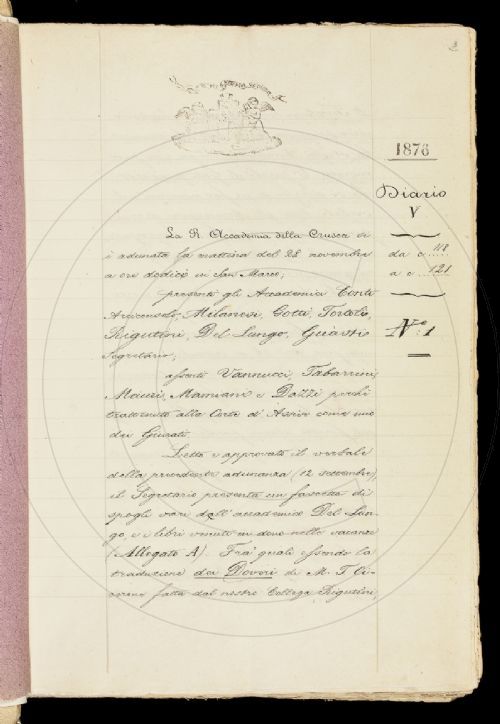 2
1876
Diario
V
da c. 118
a c. 121
N.º 1
La R. Accademia della Crusca si
è adunata la mattina del 28 novembre
a ore dodici in San Marco;
presenti gli Accademici Conti
Arciconsolo, Milanesi, Gotti, Tortoli,
Rigutini, Del Lungo, Guasti
Segretario;
assenti Vannucci, Tabarrini,
Mauri, Mamiani e Dazzi perchè
trattenuto alla Corte d'Assise come uno
dei Giurati.
Letto e approvato il verbale
della precedente adunanza (12 settembre),
il Segretario presenta un fascetto di
spogli vari dell'accademico Del Lun-
go, e i libri venuti in dono nelle vacanze
(Allegato A). Fra' quali essendo la
traduzione dei Doveri di M. T. Ci-
cerone fatta dal nostro Collega Rigutini,